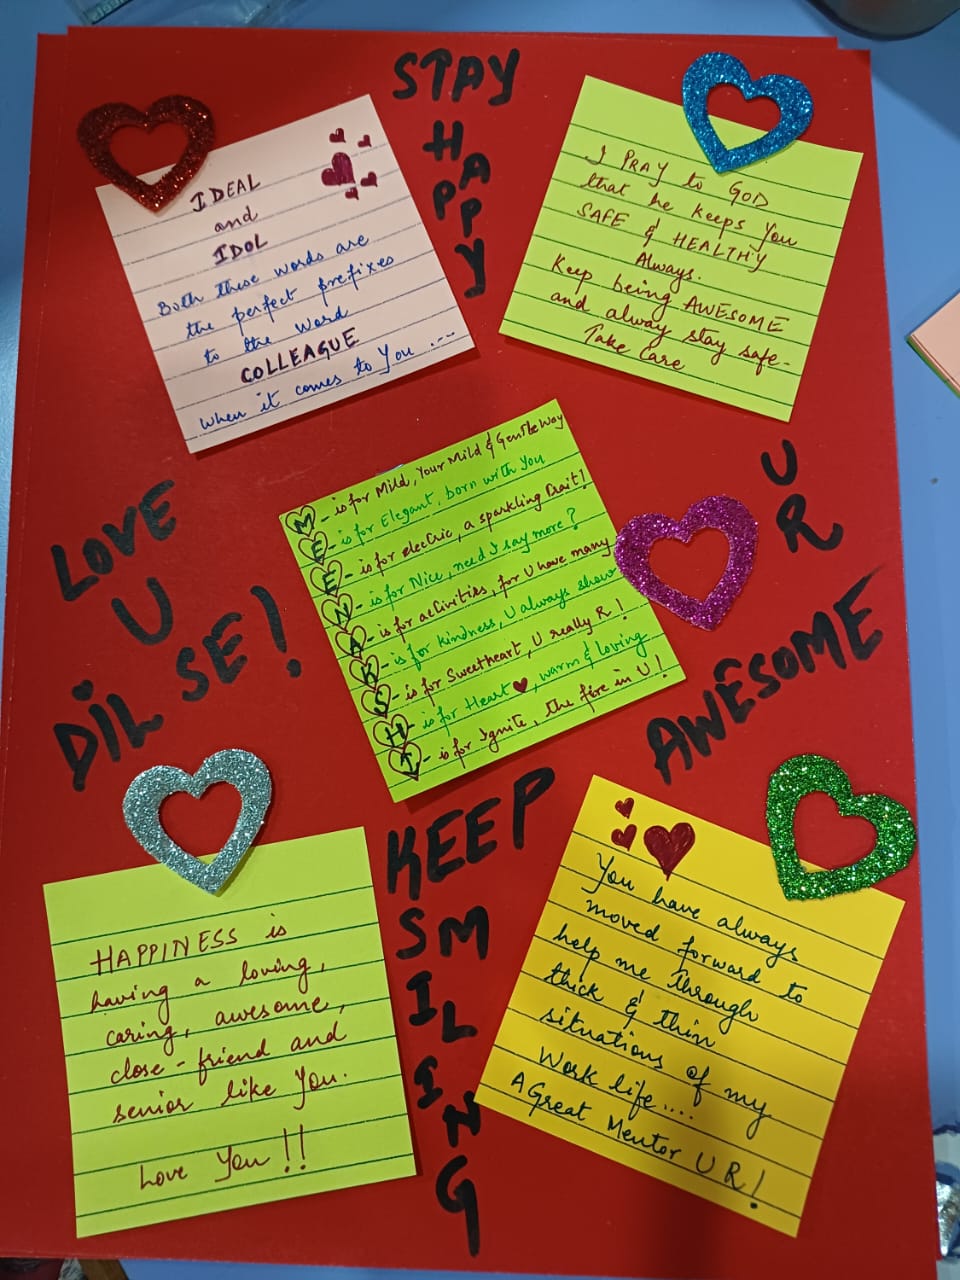 STAY
HAPPY
IDEAL
and
IDOL
Both these words are
the perfect prefixes
to the word
COLLEAGUE
when it comes to You ....
I PRAY to GOD
that he keeps You
SAFE & HEALTHY
Always.
Keep being AWESOME
and alway stay safe.
Take Care
LOVE
U
DIL SE!
M - is for Mild, Your Mild & Gentle Way
E - is for Elegant, born with You
E - is for elecTric, a sparkling Trait!
N - is for Nice, need I say more?
A - is for acTivities, for U have many
K - is for kindness, U always show
S - is for Sweetheart, U really R!
H - is for Heart ♥, warm & loving
I - is for Ignite, the fire in U!
U
R
AWESOME
KEEP
SMILING
HAPPINESS is
having a loving,
caring, awesome,
close-friend and
senior like You.
Love You!!
You have always
moved forward to
help me through
thick & thin
situations of my
Work life....
A Great Mentor U R!